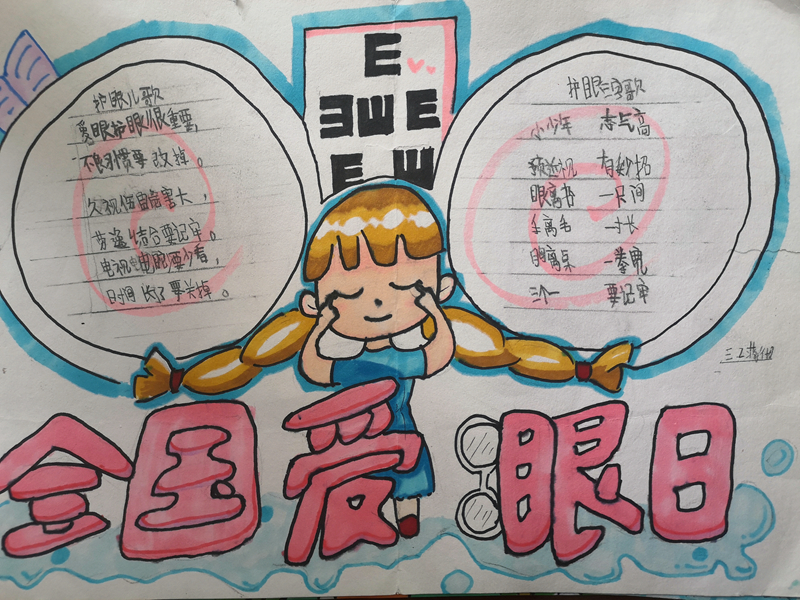 护眼儿歌
爱眼护眼很重要,
不良习惯要改掉。
久视伤目危害大,
劳逸结合要记牢。
电视电脑少看,
时间长了要关掉。
E
E E E
E E
护眼三字歌
小少年 志气高
预近视 有妙招
眼离书 一尺间
手离毛 一寸长
胸离桌 一拳宽
三个一 要记牢
三.2
全国爱眼日